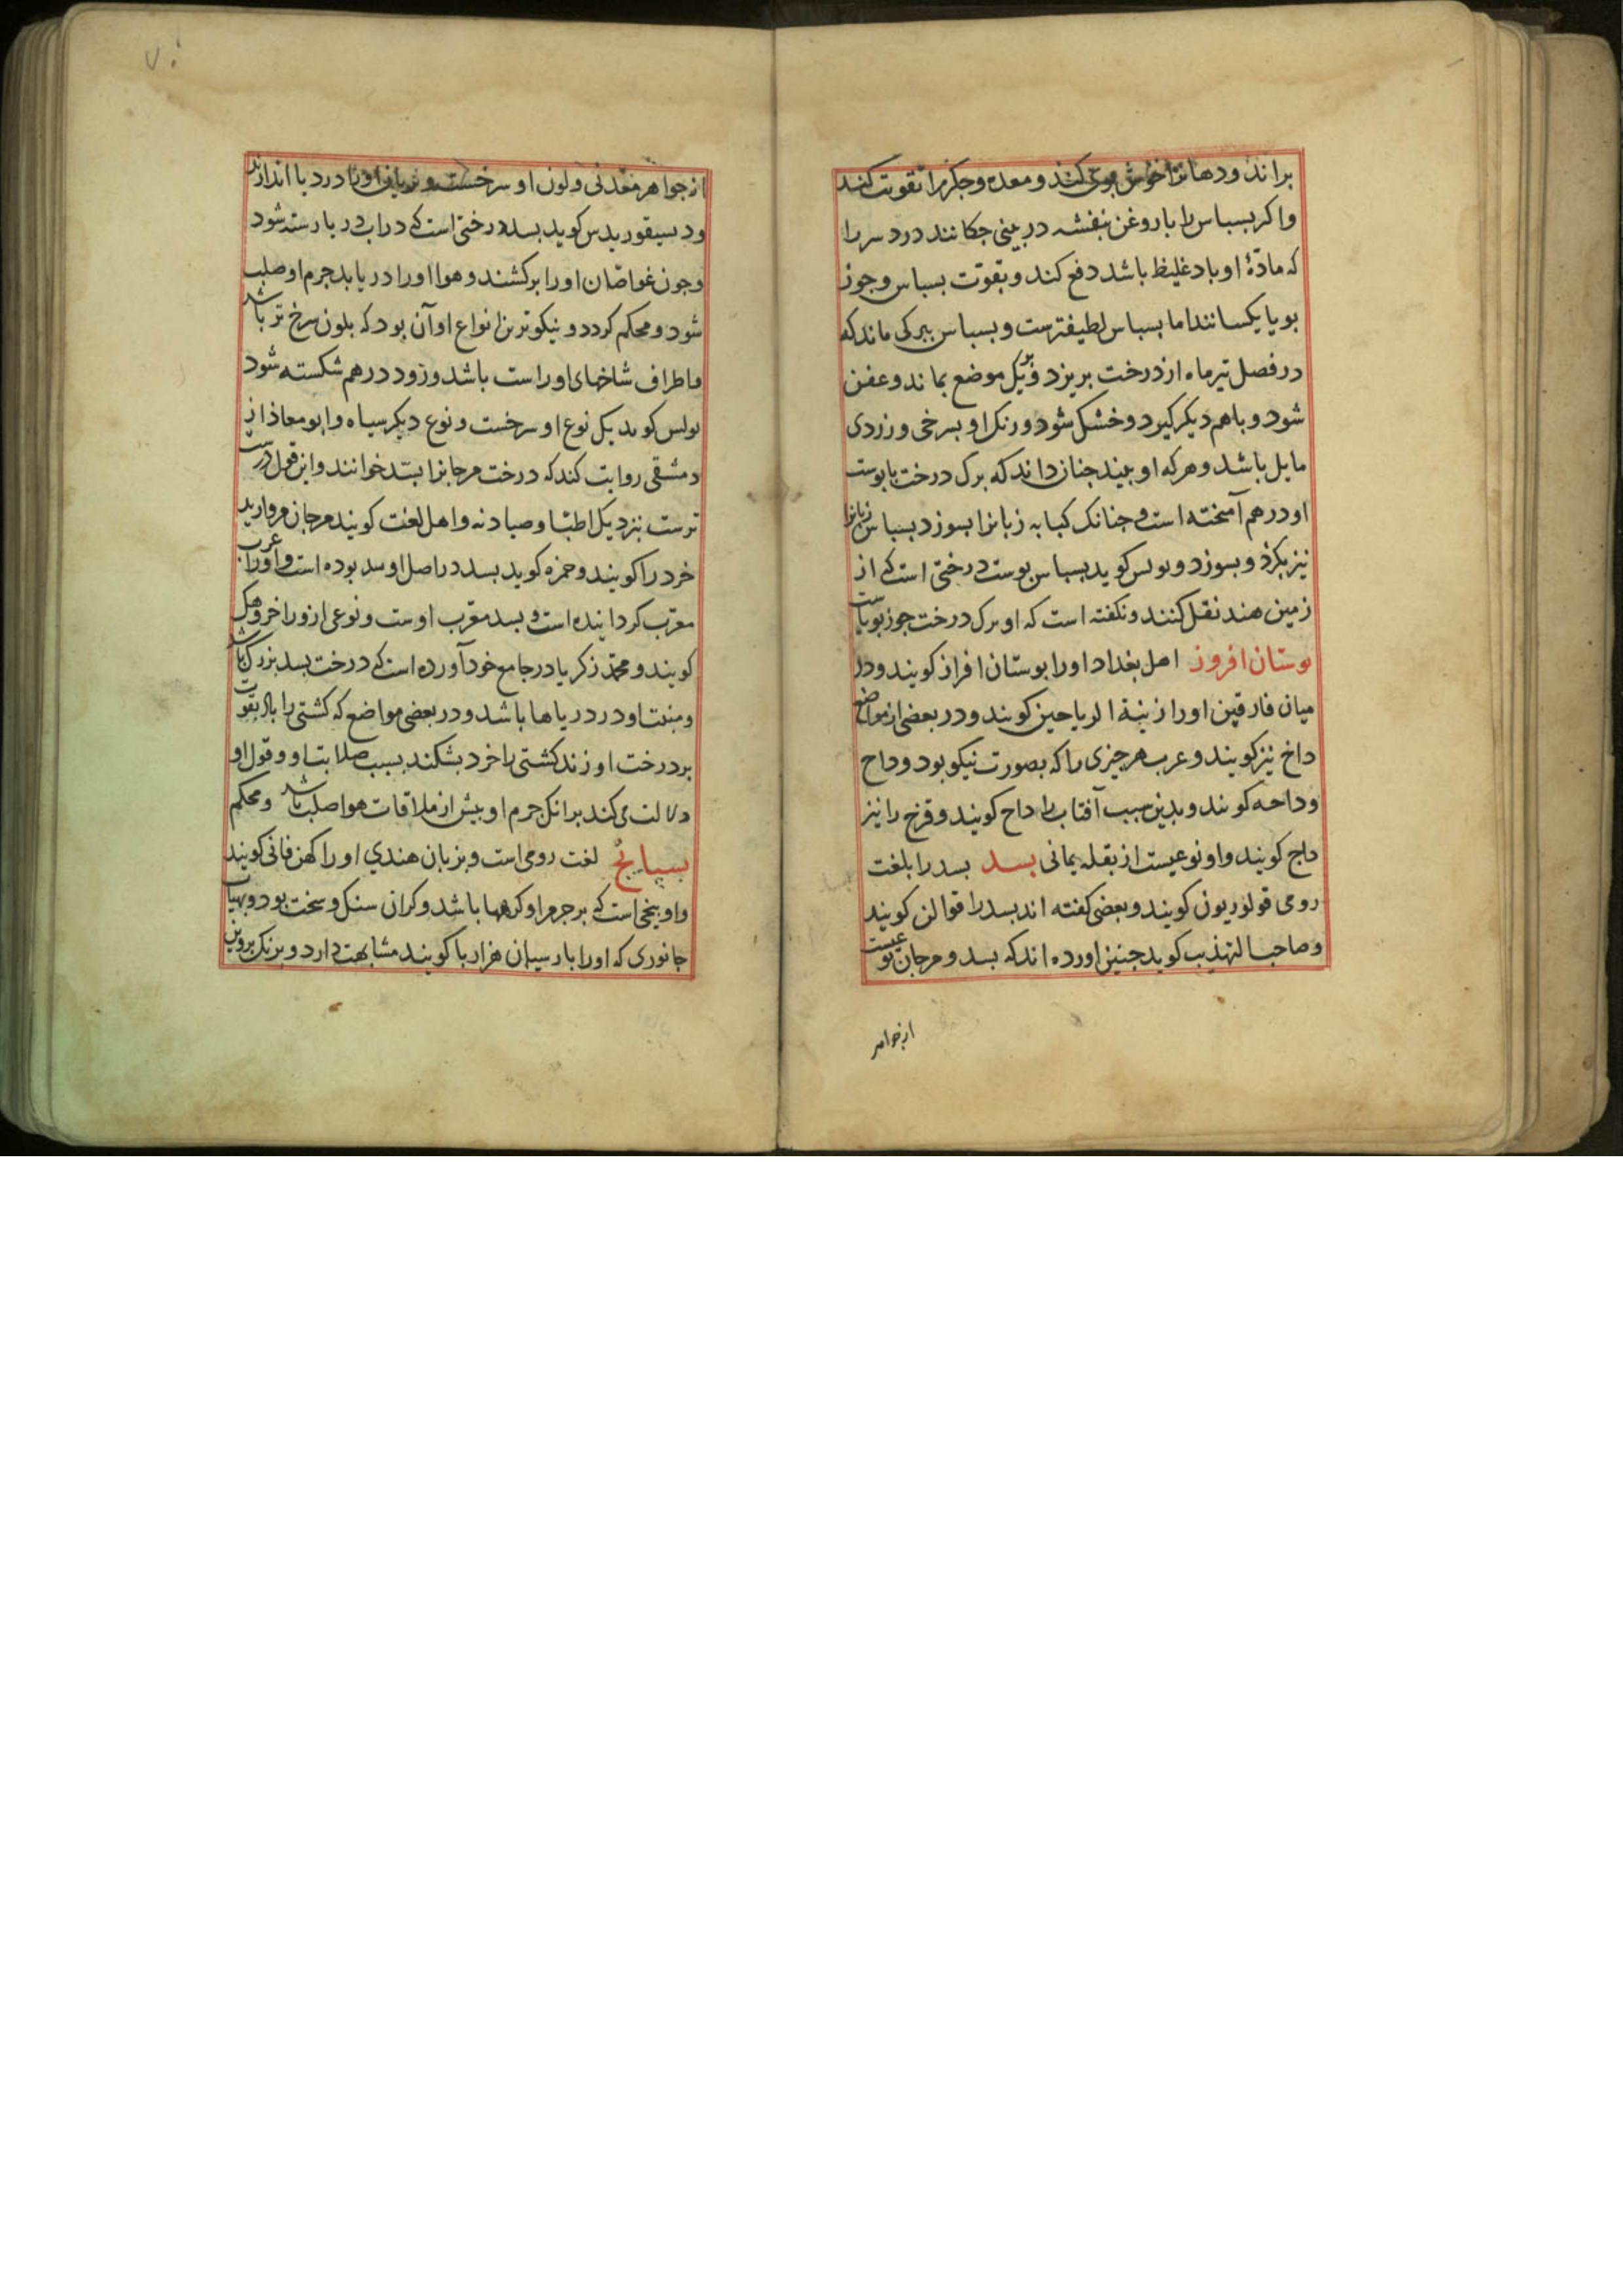 براند ودهانرا خوش بوی کند ومعده وجکر را تقویت کند
واکر بسباس را با روغن بنفشه در بینی جکانند درد سر را
که مادّهٔ او باد غلیظ باشد دفع کند و بقوّت بسباس وجوز
بویا یکسانند اما بسباس لطیفترست و بسباس ببرکی ماند که
در فصل تیرماه از درخت بریزد و بر یک موضع بماند وعفن
شود و باهم دیکر کیرد وخشک شود ورنک او بسرخی وزردی
مایل باشد وهرکه او بیند جنان داند که برک درخت با پوست
او درهم آمیخته است وجنانک کبابه زبانرا بسوزد بسباس زبانرا
نیز بکزد و بسوزد و بولس کوید بسباس پوست درختی است که از
زمین هند نقل کنند ونکفته است که او برک درخت جوز بویاست
بوستان افروز اهل بغداد اورا بوستان افراز کویند ودر
میان فارقین اورا زینة الریاحین کویند ودر بعضی از مواضع
داخ نیز کویند وعرب هرجیزی را که بصورت نیکو بود وداح
وداحه کویند وبدین سبب آفتاب را داح کویند وقزح را نیز
داح کویند واو نوعیست از بقله یمانی بسد بسد را بلغت
رومی قولوریون کویند وبعضی کفته اند بسد را قوالن کویند
وصاحب التهذیب کوید جنین اورده اند که بسد ومرجان نوعیست
از جواهر
از جواهر معدنی ولون او سرخست و اورا در دریا اندازند
ودیسقوریدس کوید بسد درختی است که در اب دریا رسته شود
وجون غوّاصان اورا برکشند وهوا اورا دریابد جرم او صلب
شود ومحکم کردد و نیکوترین انواع او آن بود که بلون سرخ تر باشد
واطراف شاخهای او راست باشد وزود درهم شکسته شود
بولس کوید یک نوع او سرخست ونوع دیکر سیاه وابو معاذ از
دمشقی روایت کند که درخت مرجانرا بسّد خوانند واین قول درست
ترست نزدیک اطبّا وصیادنه واهل لغت کویند مرجان مروارید
خرد را کویند وحمزه کوید بسد در اصل او سد بوده است وعرب اورا
معرّب کردانیده است و بسد معرّب اوست ونوعی ازو را خروهک
کویند و محمّد زکریا در جامع خود آورده است که درخت بسد بزرک باشد
ومنبت او در دریاها باشد ودر بعضی مواضع که کشتی را باد بقوت
بر درخت او زند کشتی را خرد بشکند بسبب صلابت او وقول او
دلالت می کند برانک جرم او پیش از ملاقات هوا صلب باشد ومحکم
بسبایج لغت رومی است و بزبان هندی او را کهن فانی کویند
واو بیخی است که بر جرم او کرهها باشد وکران سنک وسخت بود وبهیات
جانوری که اورا بارسیان هزاربا کویند مشابهت دارد و برنک بیرون